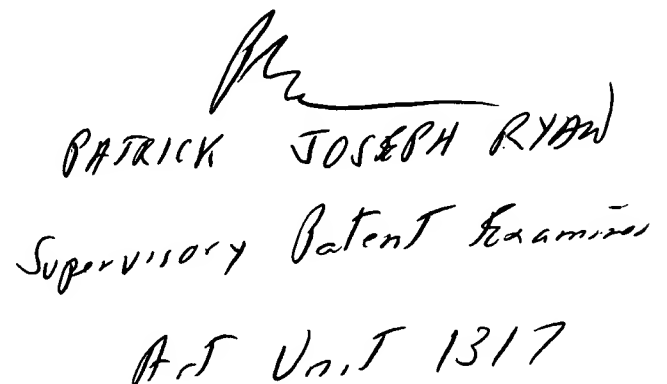 PATRICK JOSEPH RYAN
Supervisory Patent Examiner
Art Unit 1317